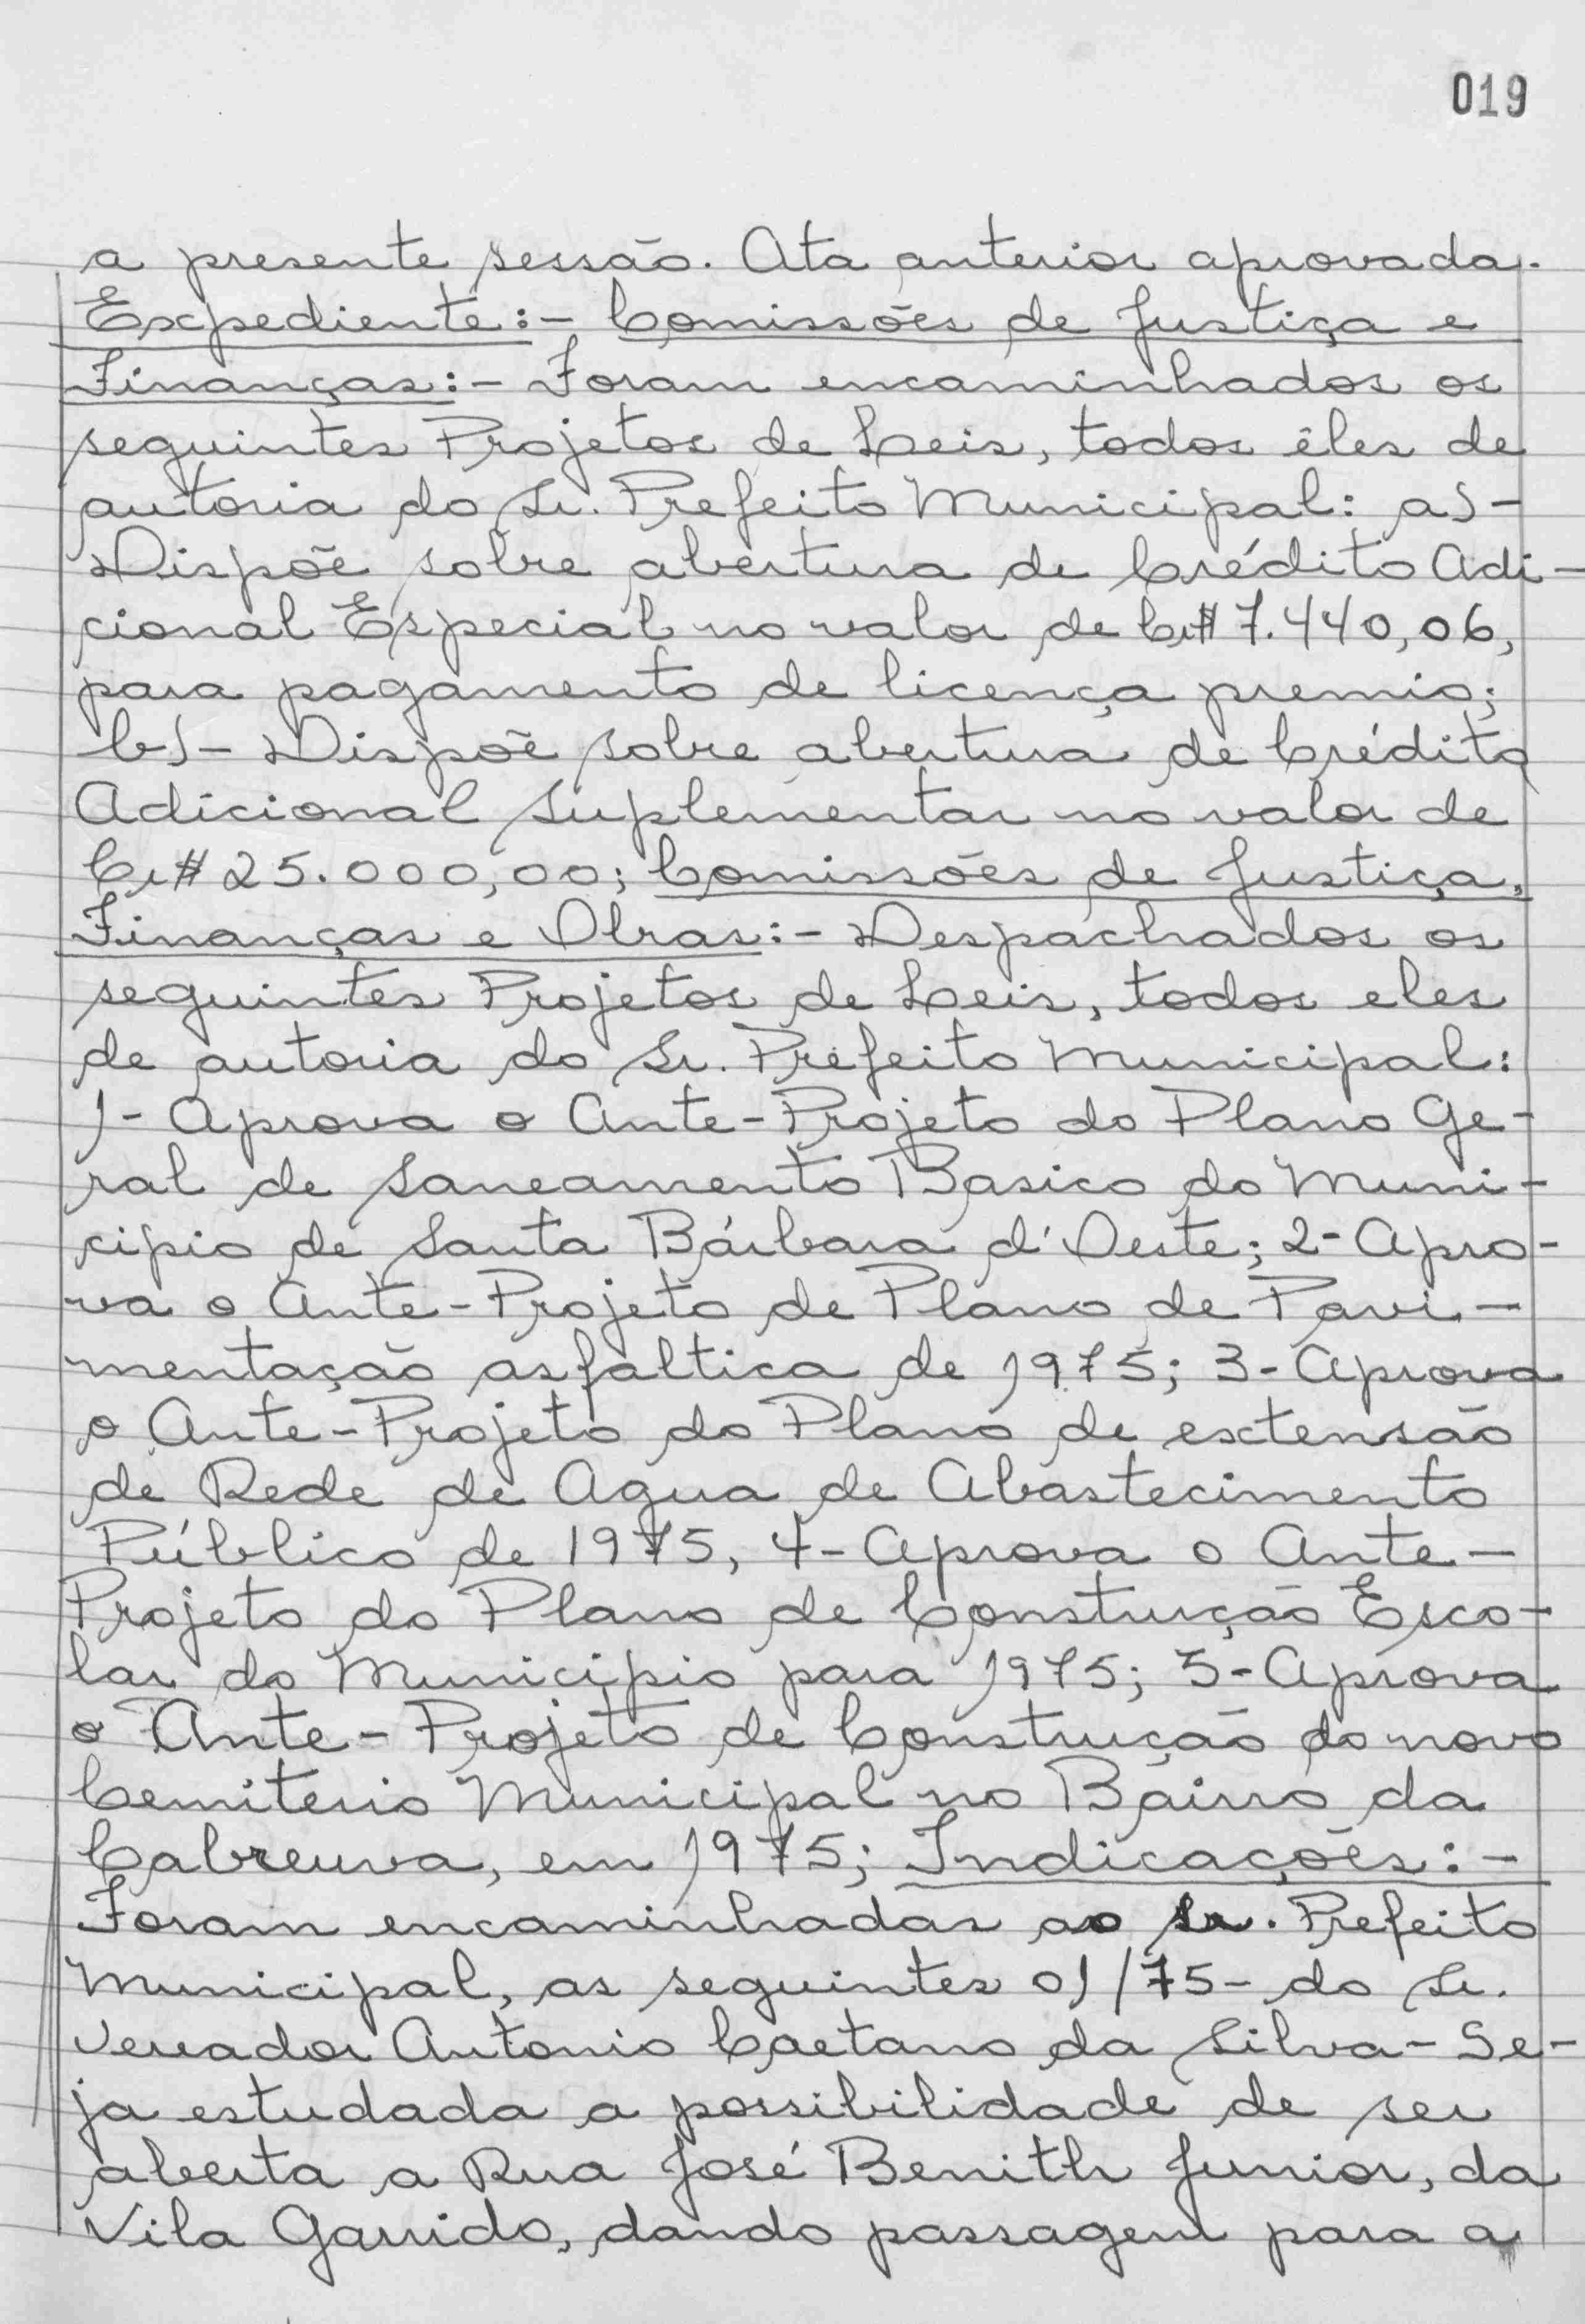 019
a presente sessão. Ata anterior aprovada.
Expediente:- Comissões de Justiça e
Finanças:- Foram encaminhados os
seguintes Projetos de Leis, todos êles de
autoria do Sr. Prefeito Municipal: a)-
Dispõe sobre abertura de Crédito Adi-
cional Especial no valor de Cr$ 7.440,06,
para pagamento de licença premio;
b)- Dispõe sobre abertura de Crédito
Adicional Suplementar no valor de
Cr$ 25.000,00; Comissões de Justiça,
Finanças e Obras:- Despachados os
seguintes Projetos de Leis, todos eles
de autoria do Sr. Prefeito Municipal:
1- Aprova o Ante-Projeto do Plano Ge-
ral de Saneamento Basico do Muni-
cipio de Santa Bárbara d'Oeste; 2- Apro-
va o Ante-Projeto de Plano de Pavi-
mentação asfaltica de 1975; 3- Aprova
o Ante-Projeto do Plano de extensão
de Rede de Agua de Abastecimento
Público de 1975, 4- Aprova o Ante-
Projeto do Plano de Construção Esco-
lar do Municipio para 1975; 5- Aprova
o Ante-Projeto de Construção do novo
Cemiterio Municipal no Bairro da
Cabreuva, em 1975; Indicações:-
Foram encaminhadas ao Sr. Prefeito
Municipal, as seguintes 01/75- do Sr.
Vereador Antonio Caetano da Silva- Se-
ja estudada a possibilidade de ser
aberta a Rua José Benith Junior, da
Vila Garrido, dando passagem para a